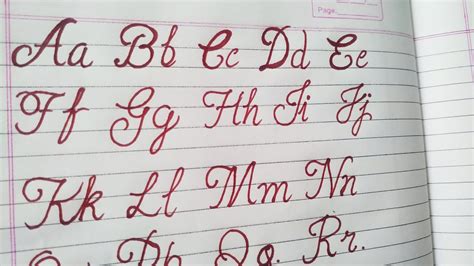 Page
Aa Bb Cc Dd Ee
Ff Gg Hh Ii Jj
Kk Ll Mm Nn
Oo Pp Qq Rr.